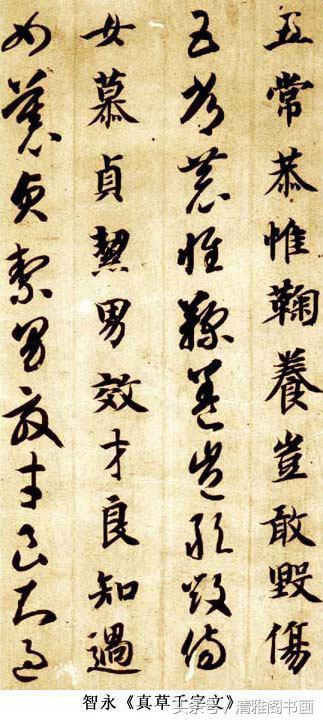 五常恭惟鞠養豈敢毀傷
五常恭惟鞠養豈敢毀傷
女慕貞絜男效才良知過
女慕貞絜男效才良知過
智永《真草千字文》
头条号/清雅图书画